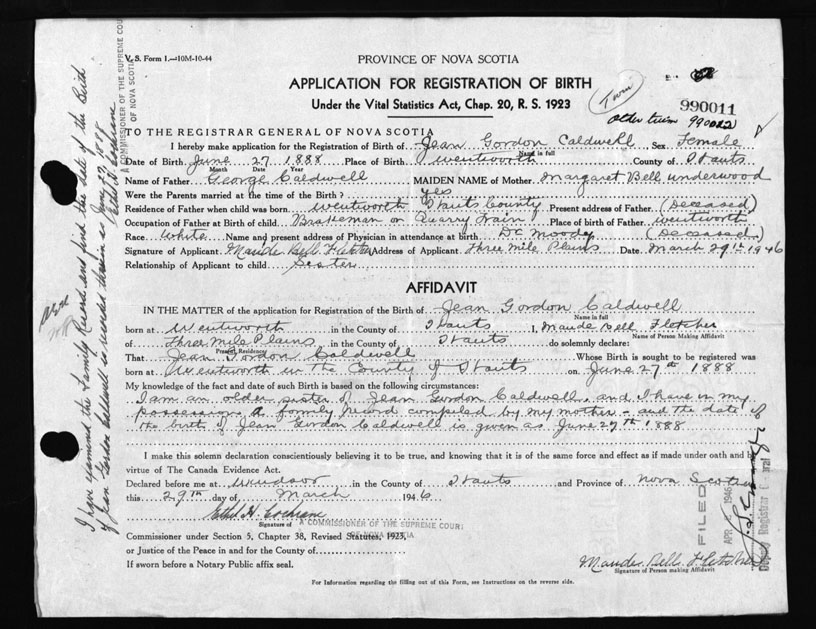 V. S. Form 1.—10M-10-44
PROVINCE OF NOVA SCOTIA
APPLICATION FOR REGISTRATION OF BIRTH
Under the Vital Statistics Act, Chap. 20, R. S. 1923
Twin
990011
older twin 990012
TO THE REGISTRAR GENERAL OF NOVA SCOTIA
I hereby make application for the Registration of Birth of Jean Gordon Caldwell Sex Female
Name in full
Date of Birth June 27 1888 Place of Birth Wentworth County of Hants
Month Date Year
Name of Father George Caldwell MAIDEN NAME of Mother Margaret Bell Underwood
Were the Parents married at the time of the Birth? yes
Residence of Father when child was born Wentworth Hants County Present address of Father (Deceased)
Occupation of Father at Birth of child Brakeman on Quarry Train Place of birth of Father Wentworth
Race White Name and present address of Physician in attendance at birth Dr. Moody (Deceased)
Signature of Applicant Maude Bell Fletcher Address of Applicant Three Mile Plains Date March 29th 1946
Relationship of Applicant to child Sister
AFFIDAVIT
IN THE MATTER of the application for Registration of the Birth of Jean Gordon Caldwell
Name in full
born at Wentworth in the County of Hants I, Maude Bell Fletcher
Name of Person Making Affidavit
of Three Mile Plains in the County of Hants do solemnly declare:
Present Residence
That Jean Gordon Caldwell Whose Birth is sought to be registered was
born at Wentworth in The County of Hants on June 27th 1888
My knowledge of the fact and date of such Birth is based on the following circumstances:
I am an older sister of Jean Gordon Caldwell, and I have in my
possession a family record compiled by my mother - and the date of
the birth of Jean Gordon Caldwell is given as June 27th 1888
I make this solemn declaration conscientiously believing it to be true, and knowing that it is of the same force and effect as if made under oath and by
virtue of The Canada Evidence Act.
Declared before me at Windsor in the County of Hants and Province of Nova Scotia
this 29th day of March 1946
Ethel H. Cochrane
Signature of A COMMISSIONER OF THE SUPREME COURT
OF NOVA SCOTIA
Commissioner under Section 5, Chapter 38, Revised Statutes, 1923,
or Justice of the Peace in and for the County of
If sworn before a Notary Public affix seal.
Maude Bell Fletcher
Signature of Person making Affidavit
For Information regarding the filling out of this Form, see Instructions on the reverse side.
I have examined the Family Record and find the date of the Birth
of Jean Gordon Caldwell is recorded therein as June 27, 1888
Ethel H. Cochrane
A COMMISSIONER OF THE SUPREME COURT
OF NOVA SCOTIA
FILED
APR 1946
Deputy Registrar General